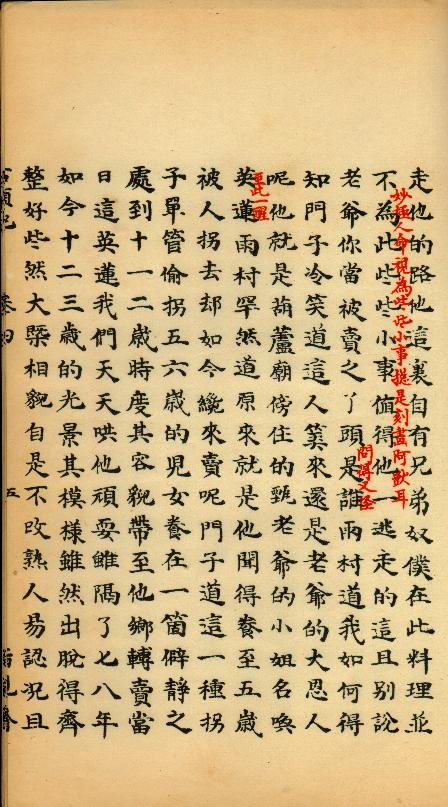 走他的路他這裏自有兄弟奴僕在此料理並
不為此些些小事值得他一逃走的這且别說
妙極人命視為些些小事摠是刻畫阿獃耳
老爺你當被賣之了頭是誰雨村道我如何得
問得又怪
知門子冷笑道這人筭來還是老爺的大恩人
呢他就是葫蘆廟傍住的甄老爺的小姐名喚
至此一醒
英蓮雨村罕然道原來就是他聞得養至五歲
被人拐去却如今纔來賣呢門子道這一種拐
子單管偷拐五六歲的児女養在一箇僻静之
處到十一二歲時度其容貌帶至他鄉轉賣當
日這英蓮我們天天哄他頑耍雖隔了七八年
如今十二三歲的光景其模樣雖然出脫得齊
整好些然大槩相貌自是不改熟人易認况且
五